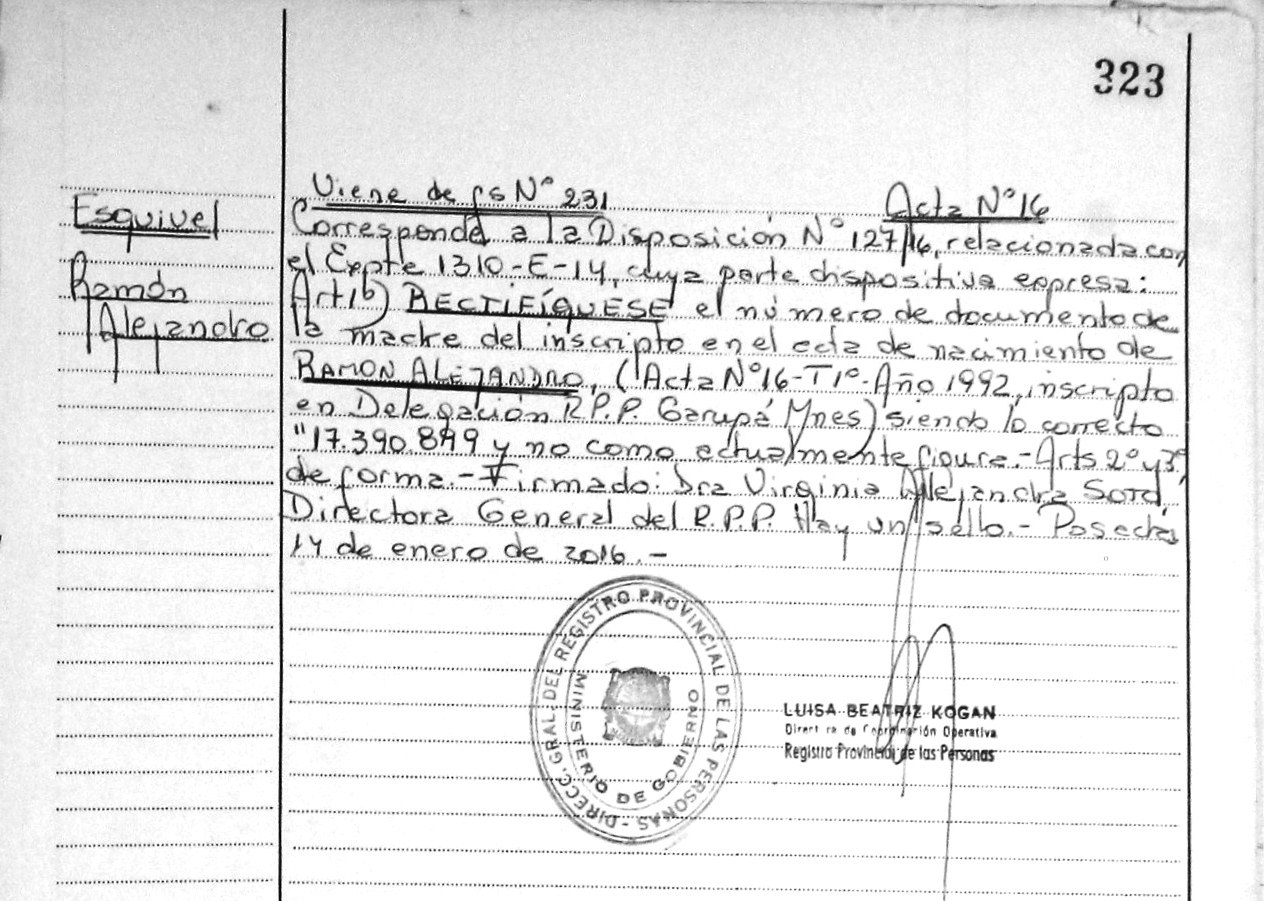 323
Viene de fs Nº 231
Acta Nº 16
Esquivel
Ramón
Alejandro
Corresponde a la Disposición Nº 127/16, relacionada con
el Expte 1310-E-14, cuya parte dispositiva expresa:
Art 1º) RECTIFÍQUESE el número de documento de
la madre del inscripto en el acta de nacimiento de
RAMON ALEJANDRO, (Acta Nº16-T1º-Año 1992, inscripto
en Delegación R.P.P. Garupá Mnes) siendo lo correcto
"17.390.849 y no como actualmente figura.- Arts 2º y 3º
de forma.- Firmado: Dra Virginia Alejandra
Directora General del R.P.P. Hay un sello.- Posadas
14 de enero de 2016.-
DIRECC. GRAL. DEL REGISTRO PROVINCIAL DE LAS PERSONAS -
MINISTERIO DE GOBIERNO
LUISA BEATRIZ KOGAN
Directora de Coordinación Operativa
Registro Provincial de las Personas